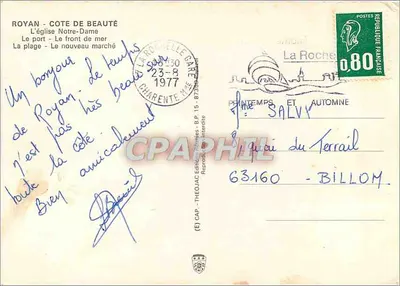 ROYAN - COTE DE BEAUTÉ
L'église Notre-Dame
Le port - Le front de mer
La plage - Le nouveau marché
Un bonjour
de Royan. Le temps
n'est pas très beau sur
toute la côte.
Bien amicalement
LA ROCHELLE GARE
23-8
1977
CHARENTE Mme
La Roche
PRINTEMPS ET AUTOMNE
POSTES
FRANÇAISE
0,80
Mme SALVY
du Terrail
63160 - BILLOM
(E) CAP - THEOJAC
CPARAMA